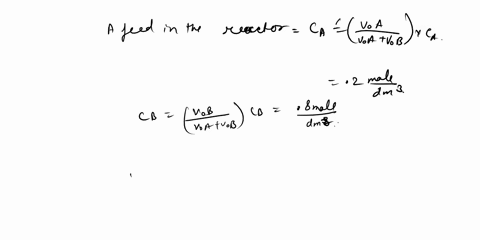 A feed in the reactor = CA' = (V₀A / V₀A + V₀B) × CA
= .2 mole / dm³
CB = (V₀B / V₀A + V₀B) CB = .8 mole / dm³